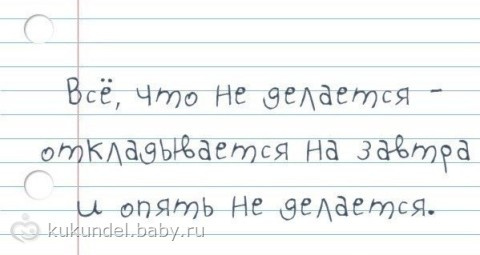 Всё, что не делается -
откладывается на завтра
и опять не делается.
kukundel.baby.ru